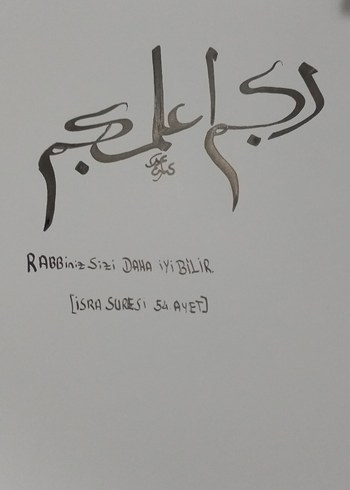 ربكم اعلم بكم
RABBiniz Sizi DAHA iYi BiLiR
[iSRA SURESi 54. AYET]